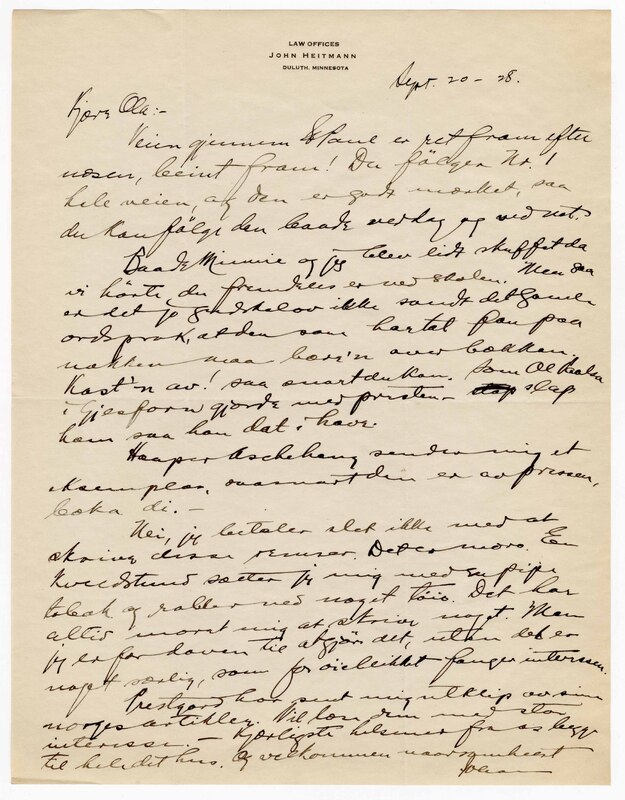 LAW OFFICES
JOHN HEITMANN
DULUTH, MINNESOTA
Sept. 20 - 28.
Kjære Ola:-
Veien gjennem St Paul er ret fram efter
nosen, beint fram! Du følger Nr. 1
hele veien, og den er godt merket, saa
du kan følge den baade ved dag og ved nat.
Baade Minnie og jeg blev lidt skuffet da
vi hørte du fremdeles er ved skolen. Men saa
er det jo gudskelov ikke sandt det gamle
ordsprok, at den som har tat fan paa
nakken maa bære'n over bækken.
Kast'n av! saa snart du kan. Som Ol
i gjorde med presten - slap slap
ham saa han dat i have.
Haaper Aschehoug sender mig et
eksemplar, saasnart den er av pressen,
boka di. -
Nei, jeg betaler slet ikke med at
skrive disse remser. Det er moro. En
kveldstund sætter jeg mig med en pipe
tobak og rabler ned noget tøis. Det har
altid moret mig at skrive noget. Men
jeg er for doven til at gjøre det, uten det er
noget særlig, som for øieblikket fanger interessen.
Prestgard har sendt mig utklip av sine
norges artikler. Vil læse dem med stor
interesse. - Kjærligste hilsener fra os begge
til hele dit hus. Og velkommen naarsomhelst
Johan